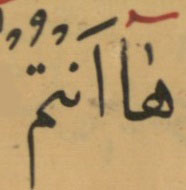 هٰٓاَنتُمُۥ